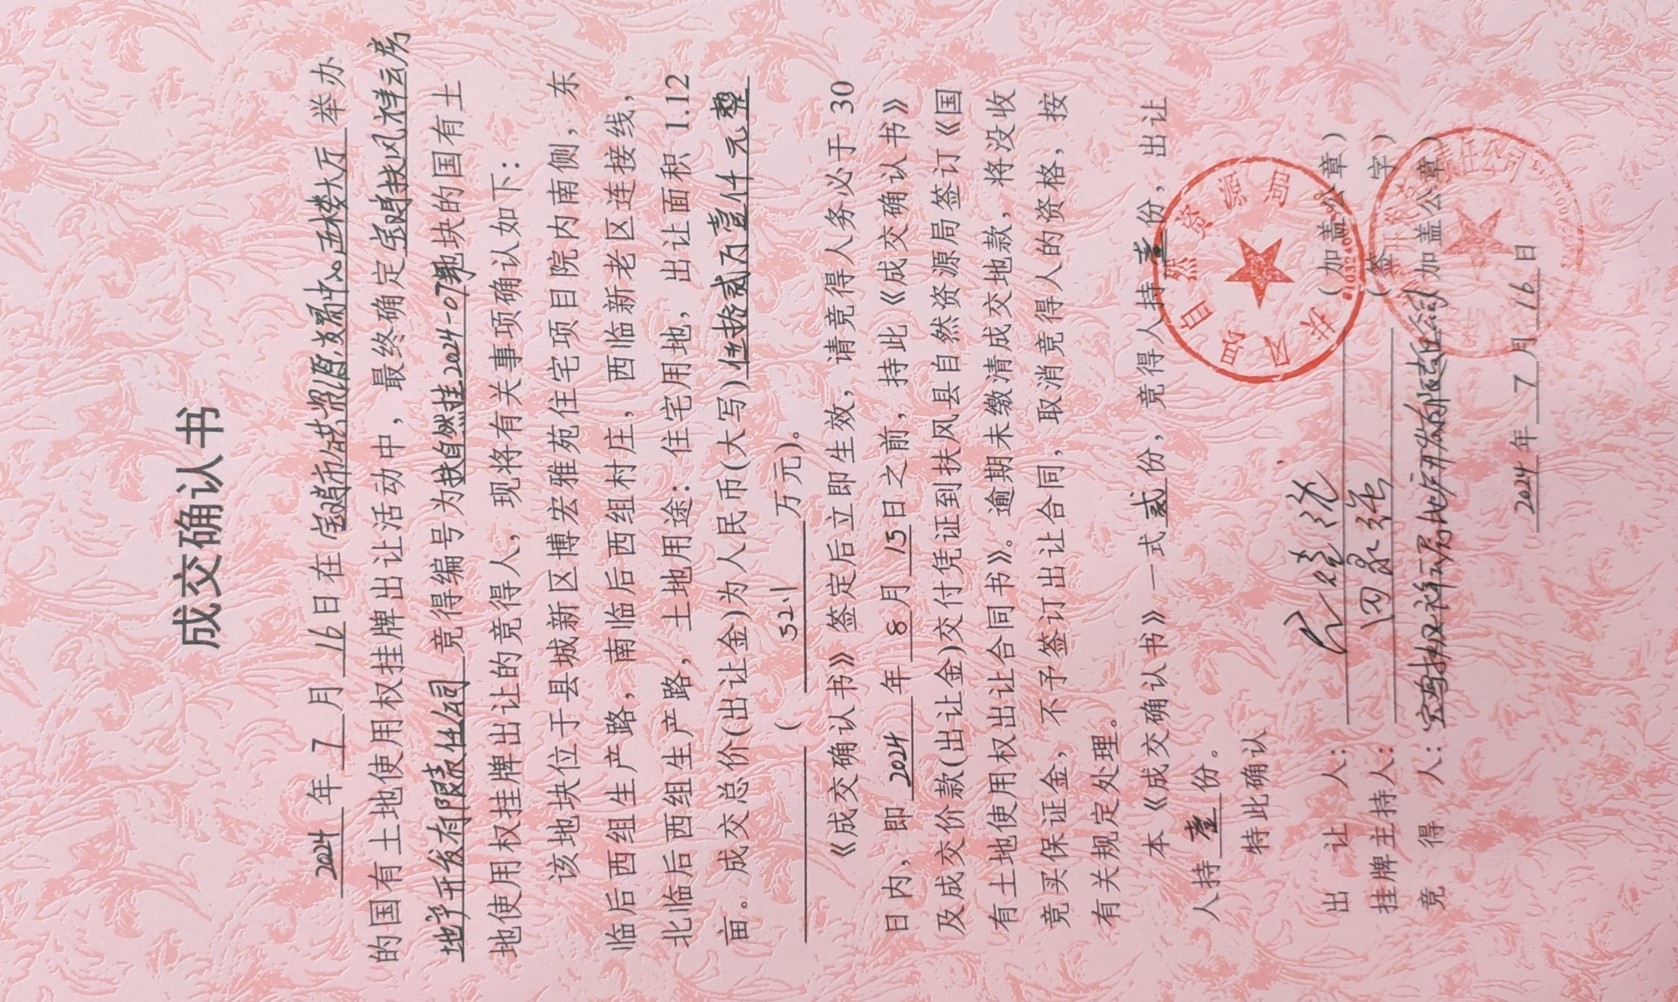 成交确认书
2024 年 7 月 16 日在 宝鸡市公共资源交易中心五楼大厅 举办
的国有土地使用权挂牌出让活动中，最终确定宝鸡扶风祥云房
地产开发有限责任公司 竞得编号为扶自然挂2024-07地块的国有土
地使用权挂牌出让的竞得人，现将有关事项确认如下：
该地块位于县城新区博宏雅苑住宅项目院内南侧，东
临后西组生产路，南临后西组村庄，西临新老区连接线，
北临后西组生产路，土地用途：住宅用地，出让面积 1.12
亩。成交总价(出让金)为人民币(大写)伍拾贰万壹仟元整
（ 52.1 万元）。
《成交确认书》签定后立即生效，请竞得人务必于 30
日内，即 2024 年 8 月 15 日之前，持此《成交确认书》
及成交价款(出让金)交付凭证到扶风县自然资源局签订《国
有土地使用权出让合同书》。逾期未缴清成交地款，将没收
竞买保证金，不予签订出让合同，取消竞得人的资格，按
有关规定处理。
本《成交确认书》一式 贰 份，竞得人持 壹 份，出让
人持 壹 份。
特此确认
出 让 人： （加盖公章）
挂牌主持人： （签 字）
竞 得 人： 房地产开发有限责任公司（加盖公章）
2024 年 7 月 16 日
扶风县自然资源局
责任公司